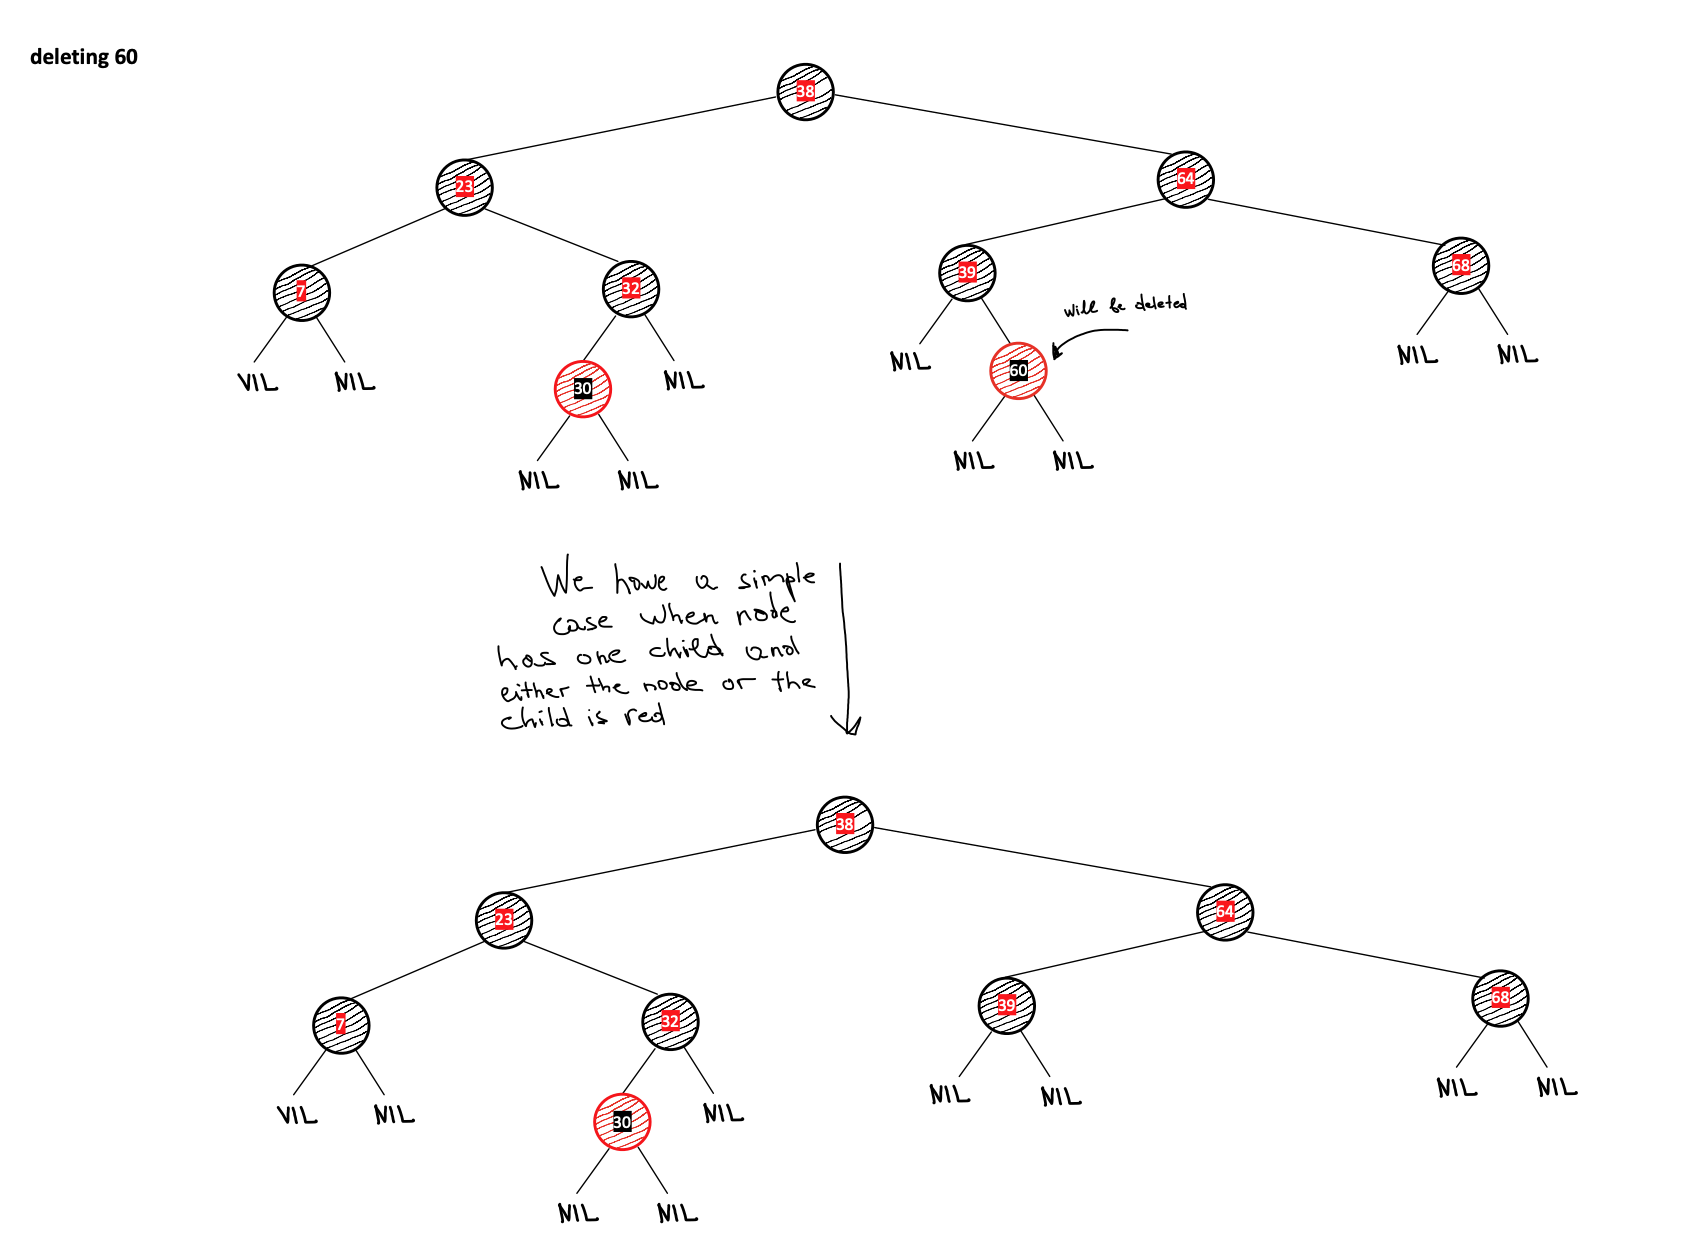 deleting 60
38
23
64
7
32
39
68
will be deleted
VIL
NIL
30
NIL
NIL
60
NIL
NIL
NIL
NIL
NIL
NIL
We have a simple
case when node
has one child and
either the node or the
child is red
38
23
64
7
32
39
68
VIL
NIL
30
NIL
NIL
NIL
NIL
NIL
NIL
NIL